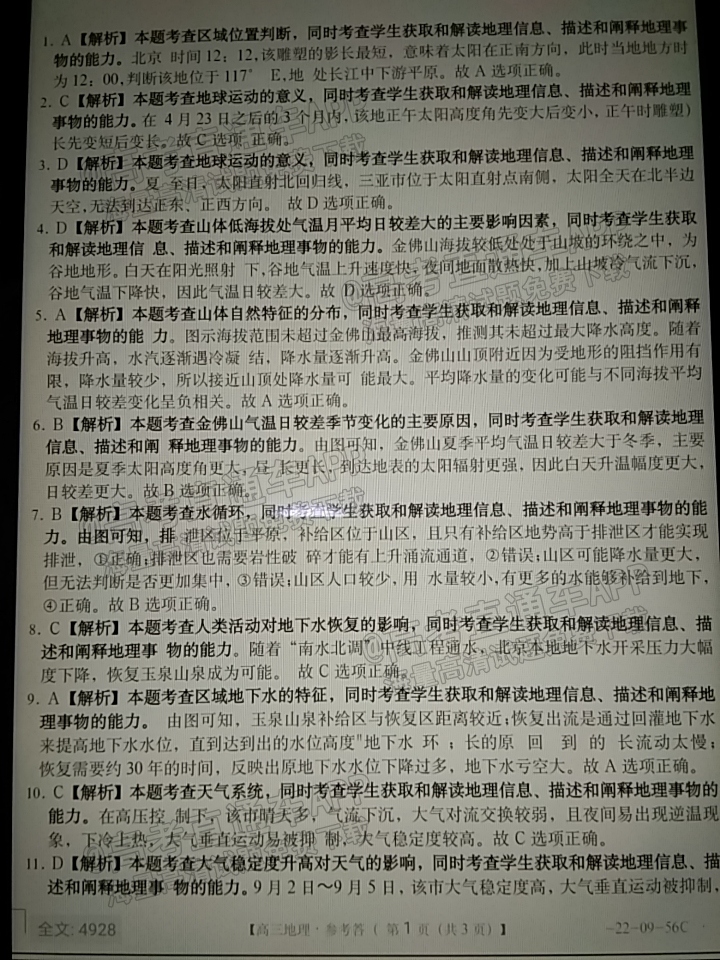 1. A【解析】本题考查区域位置判断，同时考查学生获取和解读地理信息、描述和阐释地理事
物的能力。北京 时间 12：12，该雕塑的影长最短，意味着太阳在正南方向，此时当地地方时
为 12：00，判断该地位于 117° E，地 处长江中下游平原。故 A 选项正确。
2. C【解析】本题考查地球运动的意义，同时考查学生获取和解读地理信息、描述和阐释地理
事物的能力。在 4 月 23 日之后的 3 个月内，该地正午太阳高度角先变大后变小，正午时雕塑）
长先变短后变长。故 C 选项 正确。
3. D【解析】本题考查地球运动的意义，同时考查学生获取和解读地理信息、描述和阐释地理
事物的能力。夏 至日，太阳直射北回归线，三亚市位于太阳直射点南侧，太阳全天在北半边
天空，无法到达正东、正西方向。 故 D 选项正确。
4. D【解析】本题考查山体低海拔处气温月平均日较差大的主要影响因素，同时考查学生获取
和解读地理信 息、描述和阐释地理事物的能力。金佛山海拔较低处处于山坡的环绕之中，为
谷地地形。白天在阳光照射 下，谷地气温上升速度快，夜间地面散热快，加上山坡冷气流下沉，
谷地气温下降快，因此气温日较差大。故 D 选项正确。
5. A【解析】本题考查山体自然特征的分布，同时考查学生获取和解读地理信息、描述和阐释
地理事物的能 力。图示海拔范围未超过金佛山最高海拔，推测其未超过最大降水高度。随着
海拔升高，水汽逐渐遇冷凝 结，降水量逐渐升高。金佛山山顶附近因为受地形的阻挡作用有
限，降水量较少，所以接近山顶处降水量可 能最大。平均降水量的变化可能与不同海拔平均
气温日较差变化呈负相关。故 A 选项正确。
6. B【解析】本题考查金佛山气温日较差季节变化的主要原因，同时考查学生获取和解读地理
信息、描述和阐 释地理事物的能力。由图可知，金佛山夏季平均气温日较差大于冬季，主要
原因是夏季太阳高度角更大，昼 长更长，到达地表的太阳辐射更强，因此白天升温幅度更大，
日较差更大。故 B 选项正确。
7. B【解析】本题考查水循环，同时考查学生获取和解读地理信息、描述和阐释地理事物的能
力。由图可知，排 泄区位于平原，补给区位于山区，且只有补给区地势高于排泄区才能实现
排泄，①正确；排泄区也需要岩性破 碎才能有上升涌流通道，②错误；山区可能降水量更大，
但无法判断是否更加集中，③错误；山区人口较少，用 水量较小，有更多的水能够补给到地下，
④正确。故 B 选项正确。
8. C【解析】本题考查人类活动对地下水恢复的影响，同时考查学生获取和解读地理信息、描
述和阐释地理事 物的能力。随着“南水北调”中线工程通水，北京本地地下水开采压力大幅
度下降，恢复玉泉山泉成为可能。 故 C 选项正确。
9. A【解析】本题考查区域地下水的特征，同时考查学生获取和解读地理信息、描述和阐释地
理事物的能力。 由图可知，玉泉山泉补给区与恢复区距离较近；恢复出流是通过回灌地下水
来提高地下水水位，直到达到出的水位高度"地下水 环 ；长的原 回 到 的 长流动太慢；
恢复需要约 30 年的时间，反映出原地下水水位下降过多，地下水亏空大。故 A 选项正确。
10. C【解析】本题考查天气系统，同时考查学生获取和解读地理信息、描述和阐释地理事物的
能力。在高压控 制下，该市晴天多，气流下沉，大气对流交换较弱，且夜间易出现逆温现
象，下冷上热，大气垂直运动易被抑 制，大气稳定度较高。故 C 选项正确。
11. D【解析】本题考查大气稳定度升高对天气的影响，同时考查学生获取和解读地理信息、描
述和阐释地理事 物的能力。9 月 2 日～9 月 5 日，该市大气稳定度高，大气垂直运动被抑制，
全文: 4928
【高三地理·参考答（ 第 1 页（共 3 页）】
-22-09-56C
@高考直通车APP
海量高清试题免费下载